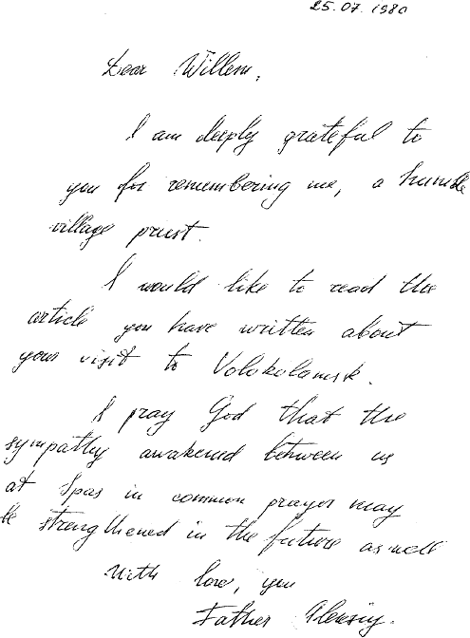 25.07.1980
Dear Willem,
I am deeply grateful to
you for remembering me, a humble
village priest.
I would like to read the
article you have written about
your visit to Volokolamsk.
I pray God that the
sympathy awakened between us
at Spas in common prayer may
be strengthened in the future as well
With love, you
Father Alexiy.